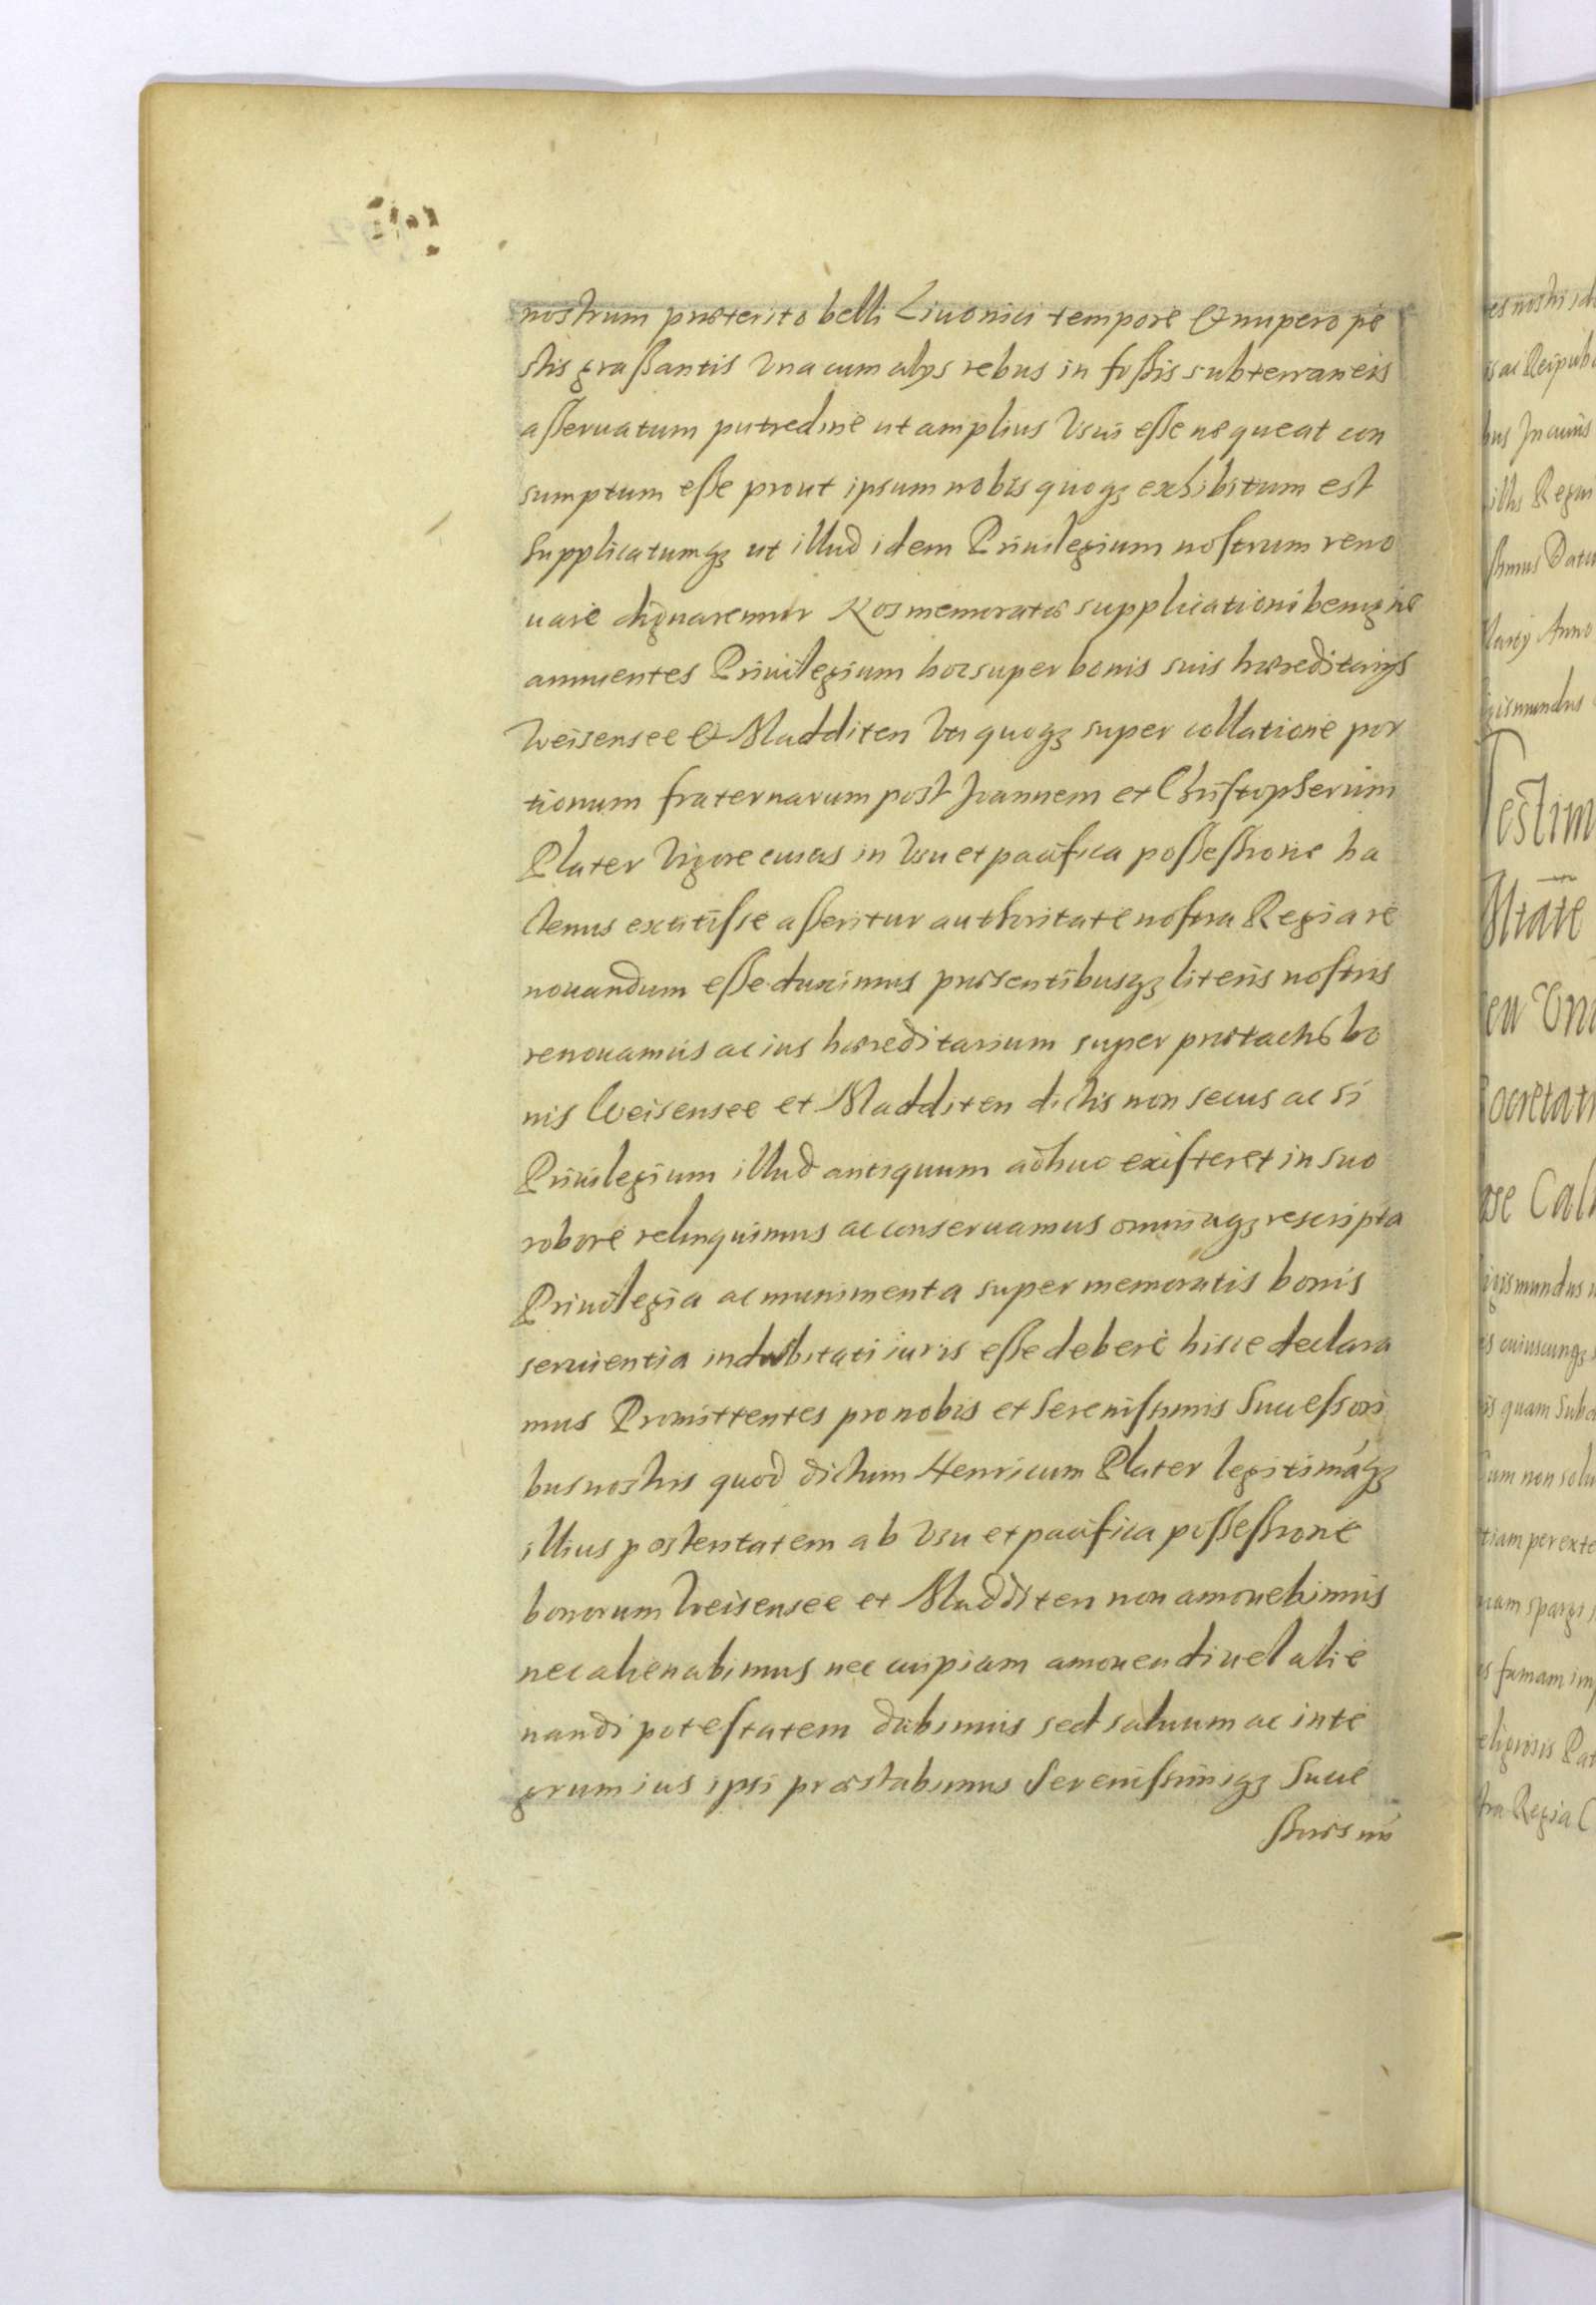 nostrum præterito belli Liuonici tempore & nupero pe
stis graßantis Vna cum alys rebus in foßis subterraneis
aßeruatum putredine ut amplius Vsui eße nequeat con
sumptum eße prout ipsum nobis quoqȝ exhibitum est
Supplicatumqȝ ut illud idem Priuilegium nostrum reno
uare dignaremur Nos memoratæ supplicationi benigne
annuentes Priuilegium hoc super bonis suis hæreditarijs
Weisensee & Madditen Vti quoqȝ super collatione por
tionum fraternarum post Joannem et Christopherum
Plater Vigore cuius in Vsu et pacifica poßeßione ha
ctenus extitisse aßeritur authoritate nostra Regia re
nouandum eße duximus præsentibusqȝ literis nostris
renouamus ac ius hæreditarium super prætactis bo
nis Weisensee et Madditen dictis non secus ac si
Priuilegium illud antiquum adhuc existeret in suo
robore relinquimus ac conseruamus omniaqȝ rescripta
Priuilegia ac munimenta super memoratis bonis
seruientia indubitati iuris eße debere hisce declara
mus Promittentes pro nobis et Serenissimis Successori
bus nostris quod dictum Henricum Plater legitimáqȝ
illius posteritatem ab Vsu et pacifica poßeßione
bonorum Weisensee et Madditen non amouebimus
nec alienabimus nec cuipiam amouendi uel alie
nandi potestatem dabimus sed saluum ac inte
grum ius ipsi præstabimus Serenissimiqȝ Succe
es nostri
ac Reipub
bus In cuius
illis Regni
ssimus Datu
Anno
gismundus
Testim
Mtate
eu Vn
ocietati
Cal
igismundus
cuiuscunqȝ
is quam Sub
um non solu
tiam per exte
uam spargi
s famam im
eligiosis Pat
tra Regia C